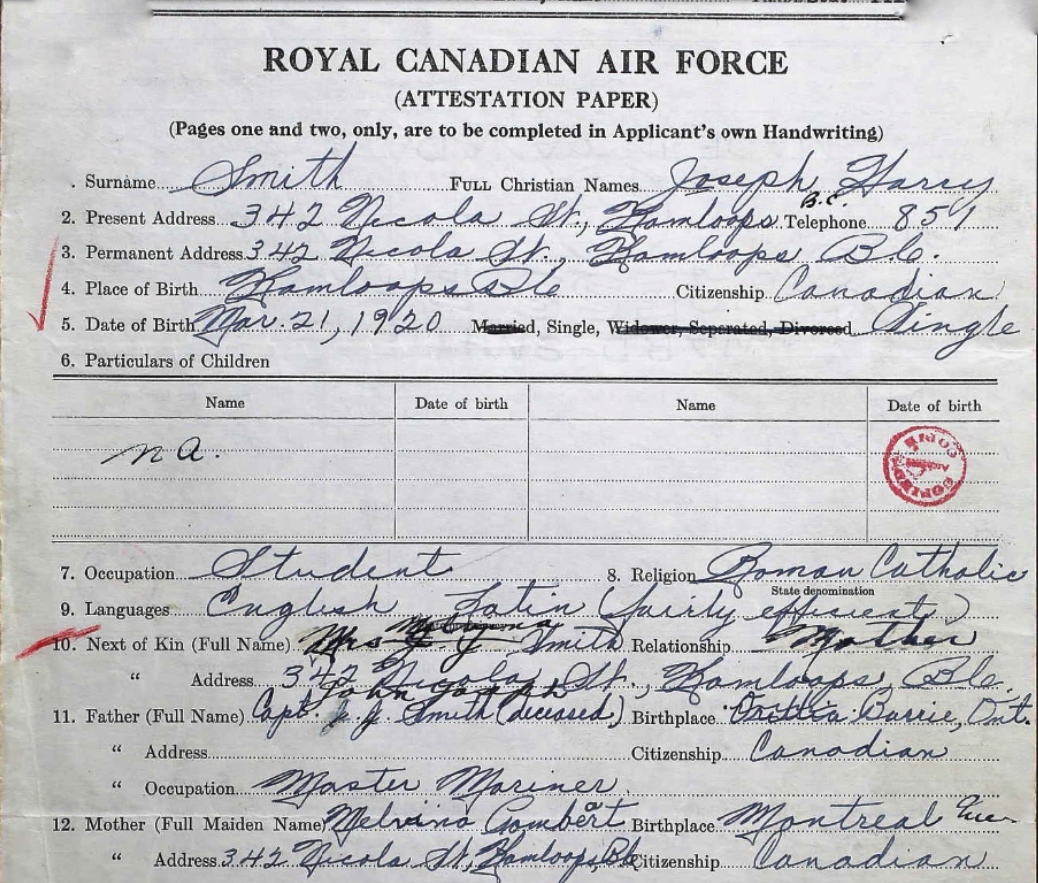 ROYAL CANADIAN AIR FORCE
(ATTESTATION PAPER)
(Pages one and two, only, are to be completed in Applicant's own Handwriting)
. Surname Smith FULL Christian Names Joseph Harry
2. Present Address 342 Nicola St., Kamloops B.C. Telephone 859
3. Permanent Address 342 Nicola St., Kamloops B.C.
4. Place of Birth Kamloops B.C. Citizenship Canadian
5. Date of Birth Mar. 21, 1920 Married, Single, Widower, Seperated, Divorced Single
6. Particulars of Children
Name Date of birth Name Date of birth
n a.
COPIED
7. Occupation Student 8. Religion Roman Catholic
State denomination
9. Languages English Latin (fairly efficient)
10. Next of Kin (Full Name) Mrs Smith Relationship Mother
" Address 342 Nicola St., Kamloops, B.C.
John Joseph
11. Father (Full Name) Capt. J. J. Smith (deceased) Birthplace Barrie, Ont.
" Address Citizenship Canadian
" Occupation Master Mariner.
12. Mother (Full Maiden Name) Melvina Gombert Birthplace Montreal Que.
" Address 342 Nicola St, Kamloops, B.C. Citizenship Canadian